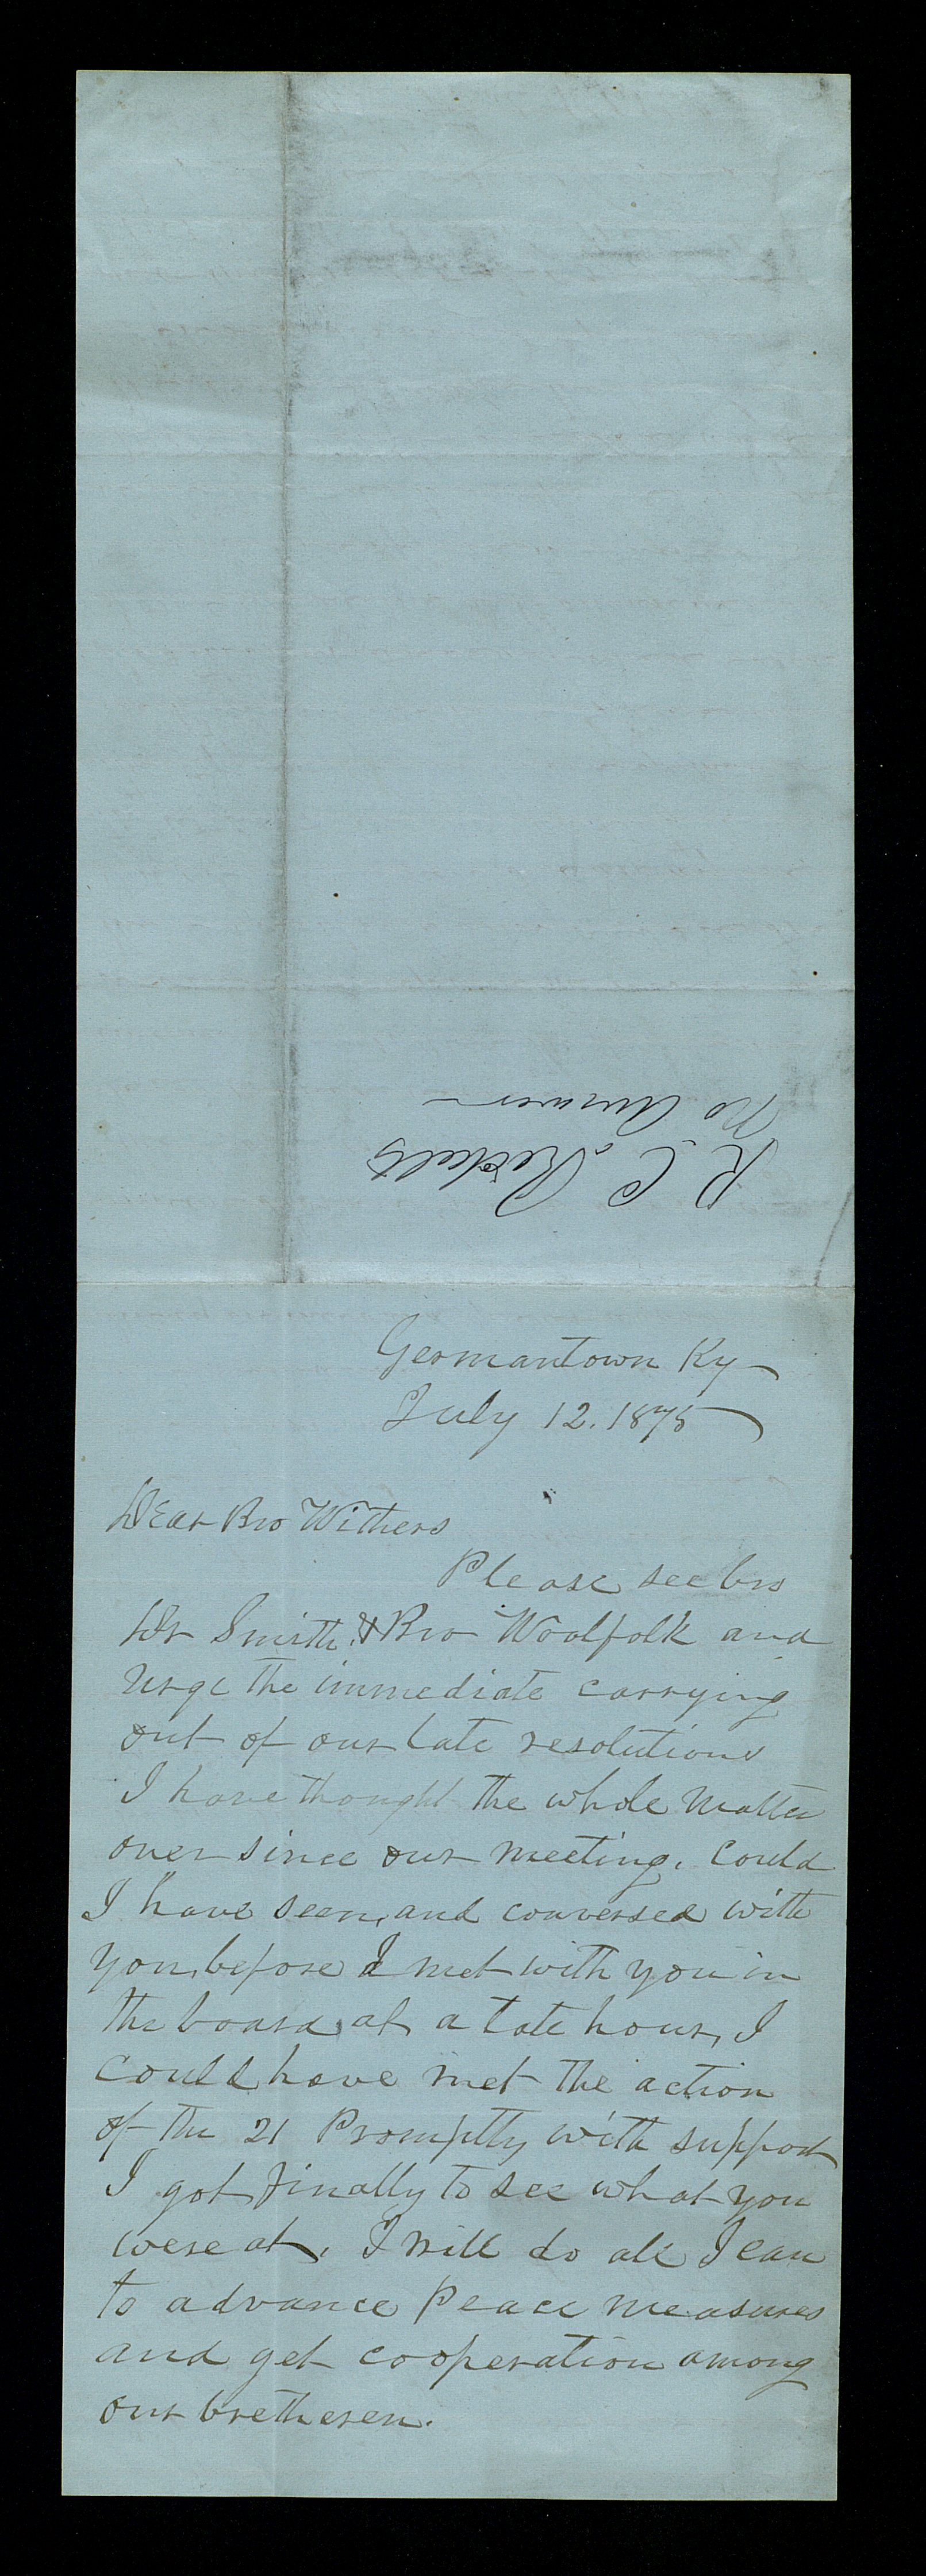 R. C. Ricketts
No Answer
Germantown Ky
July 12. 1875
Dear Bro Withers
Please see bro
Dr Smith & Bro Woolfolk and
urge the immediate carrying
out of our late resolutions
I have thought the whole matter
over since our meeting. Could
I have seen, and conversed with
you, before I met with you in
the board, at, a late hour, I
could have met the action
of the 21 Promptly with support
I got finally to see what you
were at. I will do all I can
to advance Peace measures
and get cooperation among
our bretheren.